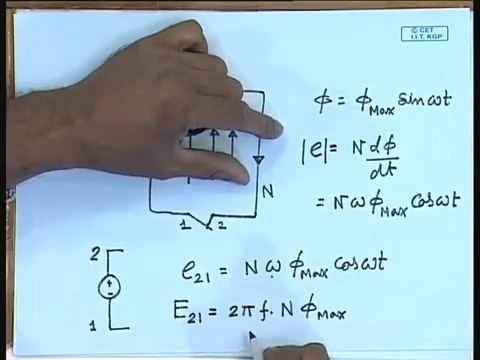 © CET
I.I.T. KGP
ϕ = ϕ_Max sin ωt
|e| = N dϕ/dt
= N ω ϕ_Max cos ωt
N
1 2
e_21 = N ω ϕ_Max cos ωt
2
E_21 = 2π f. N ϕ_Max
1